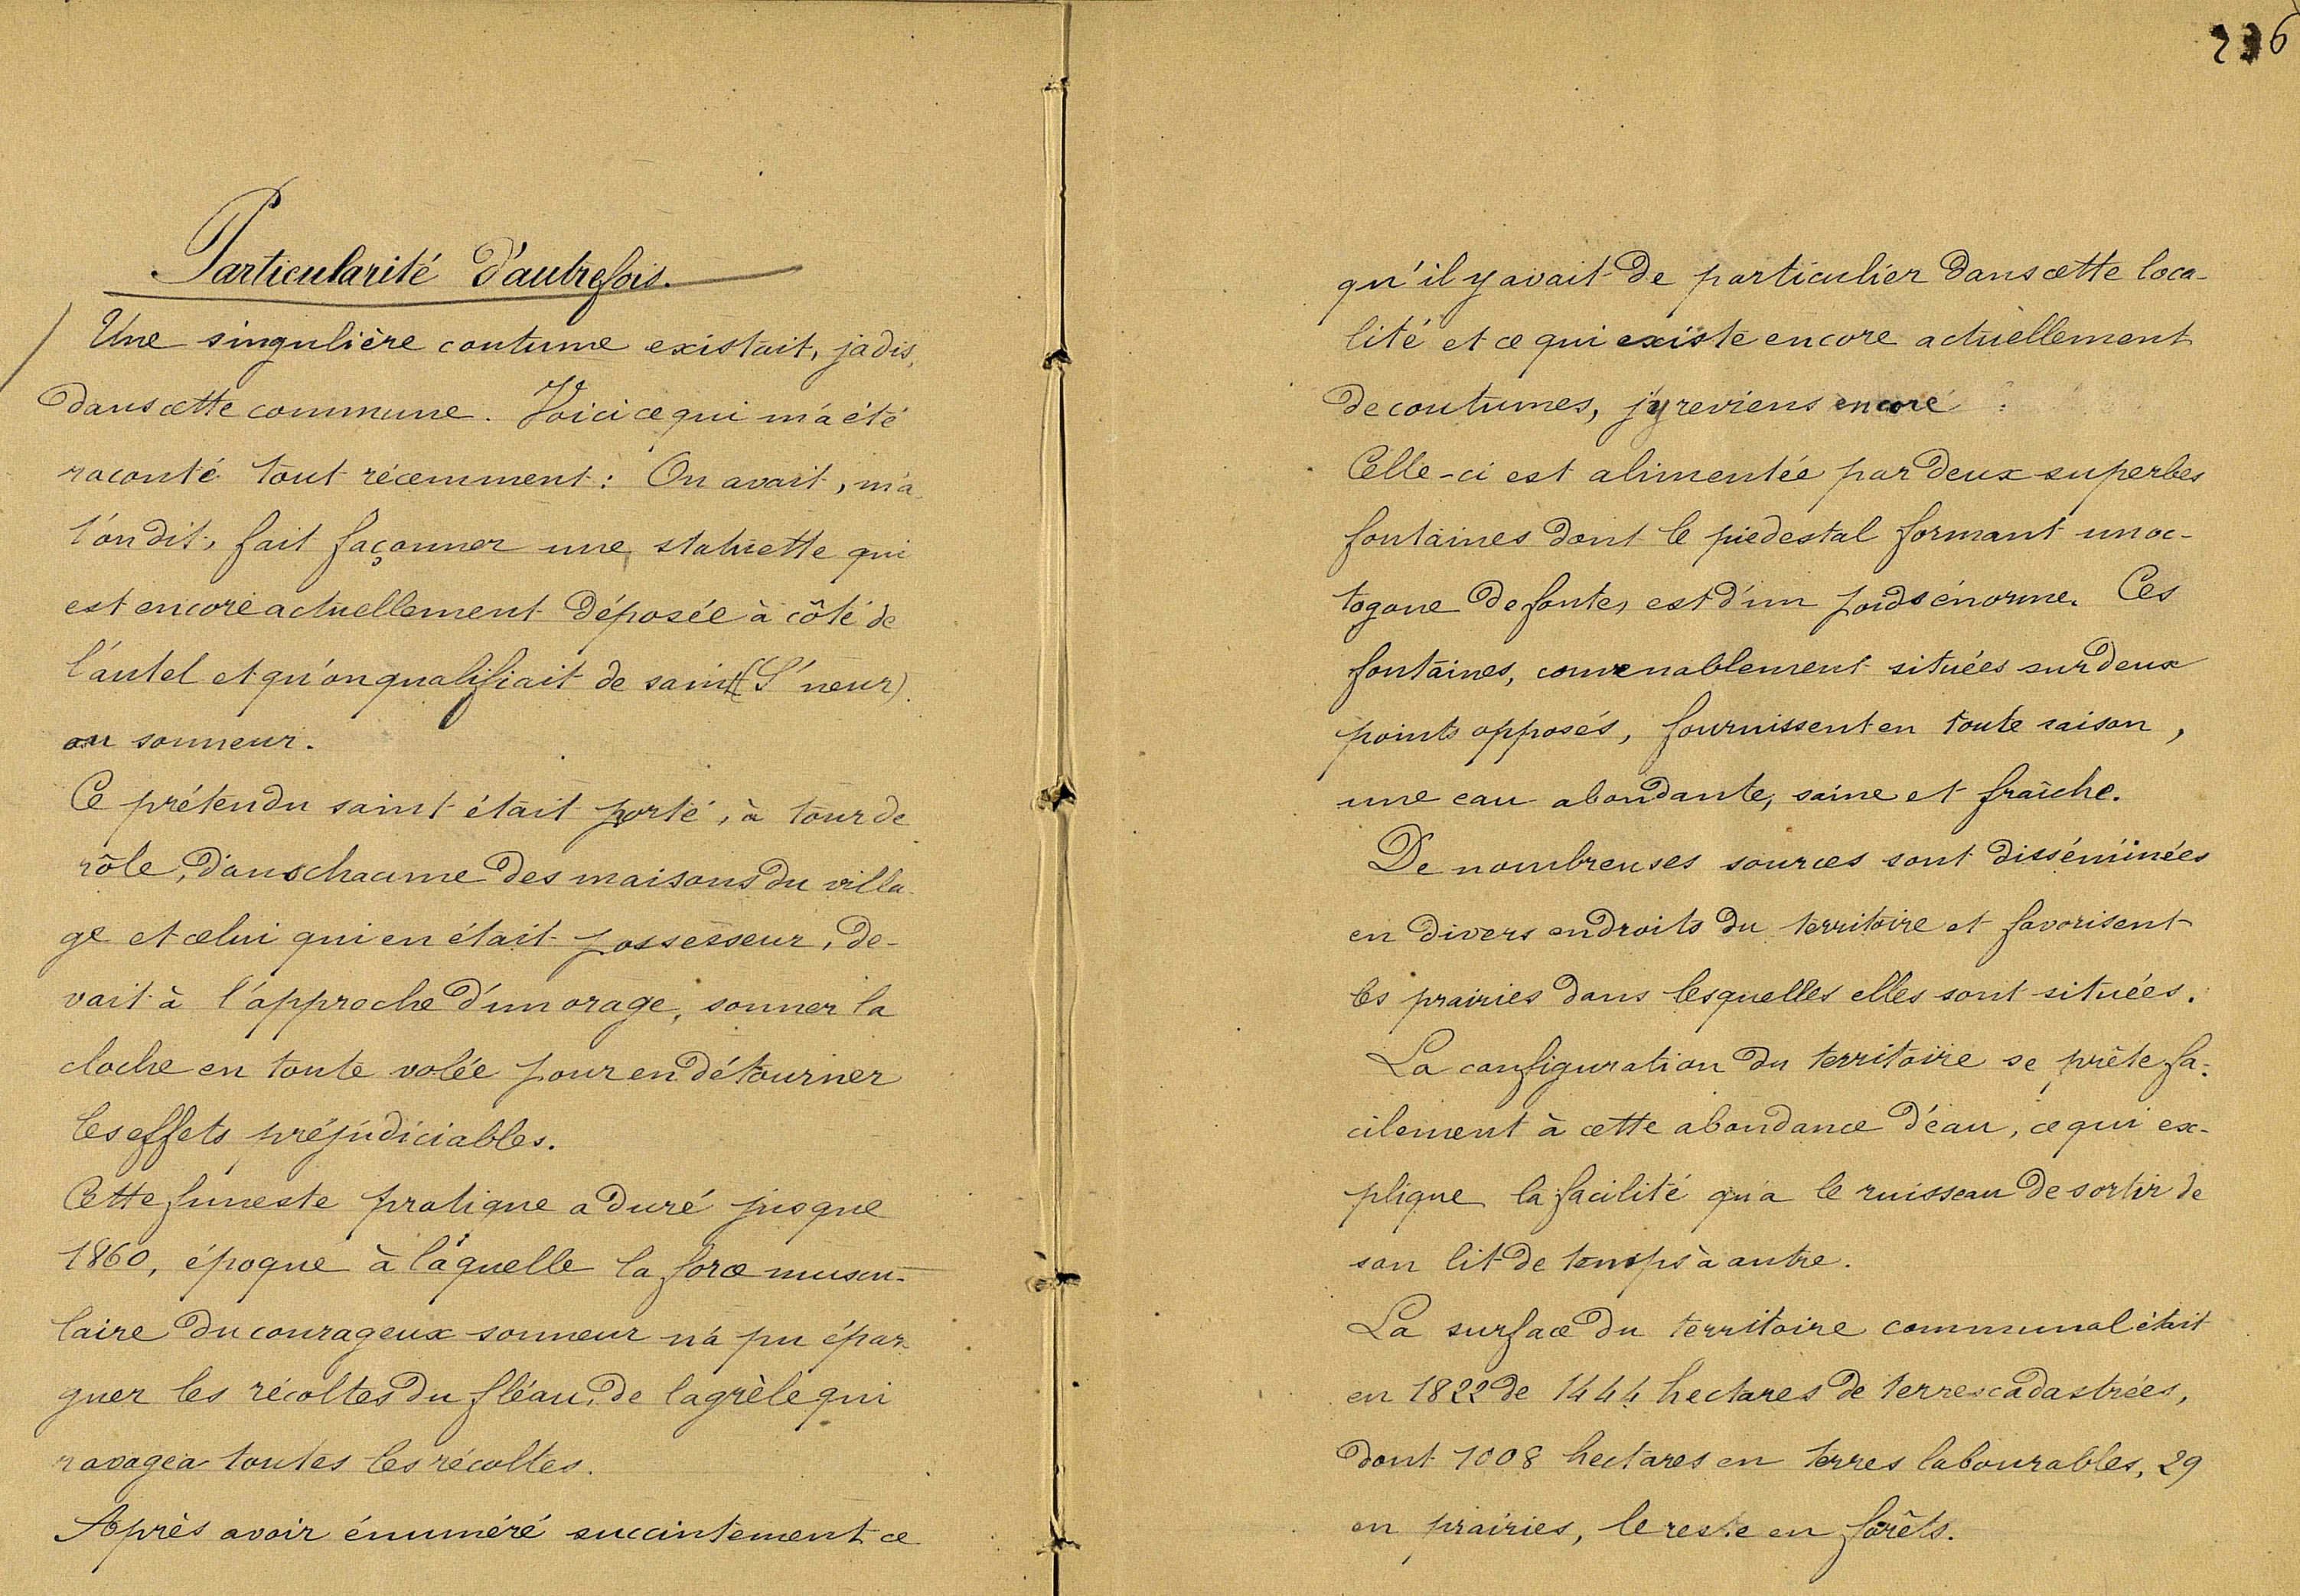 Particularité d'autrefois.
Une singulière coutume existait, jadis,
dans cette commune. Voici ce qui m'a été
raconté tout récemment : On avait, m'a
t'on dit, fait façonner une statuette qui
est encore actuellement déposée à côté de
l'autel et qu'on qualifiait de saint (S'neur)
ou sonneur.
Ce prétendu saint était porté, à tour de
rôle, dans chacune des maisons du villa-
ge et celui qui en était possesseur, de-
vait à l'approche d'un orage, sonner la
cloche en toute volée pour en détourner
les effets préjudiciables.
Cette funeste pratique a duré jusque
1860, époque à laquelle la force muscu-
laire du courageux sonneur n'a pu épar-
gner les récoltes du fléau, de la grèle qui
ravagea toutes les récoltes.
Après avoir énuméré succintement ce
236
qu'il y avait de particulier dans cette loca-
lité et ce qui existe encore actuellement
de coutumes, j'y reviens encore :
Celle-ci est alimentée par deux superbes
fontaines dont le piedestal formant un oc-
togone de fonte, est d'un poids énorme. Ces
fontaines, convenablement situées sur deux
points opposés, fournissent en toute saison,
une eau abondante, saine et fraîche.
De nombreuses sources sont disséminées
en divers endroits du territoire et favorisent
les prairies dans lesquelles elles sont situées.
La configuration du territoire se prête fa-
cilement à cette abondance d'eau, ce qui ex-
plique la facilité qu'a le ruisseau de sortir de
son lit de temps à autre.
La surface du territoire communal était
en 1822 de 1444 hectares de terres cadastrées,
dont 1008 hectares en terres labourables, 29
en prairies, le reste en forêts.